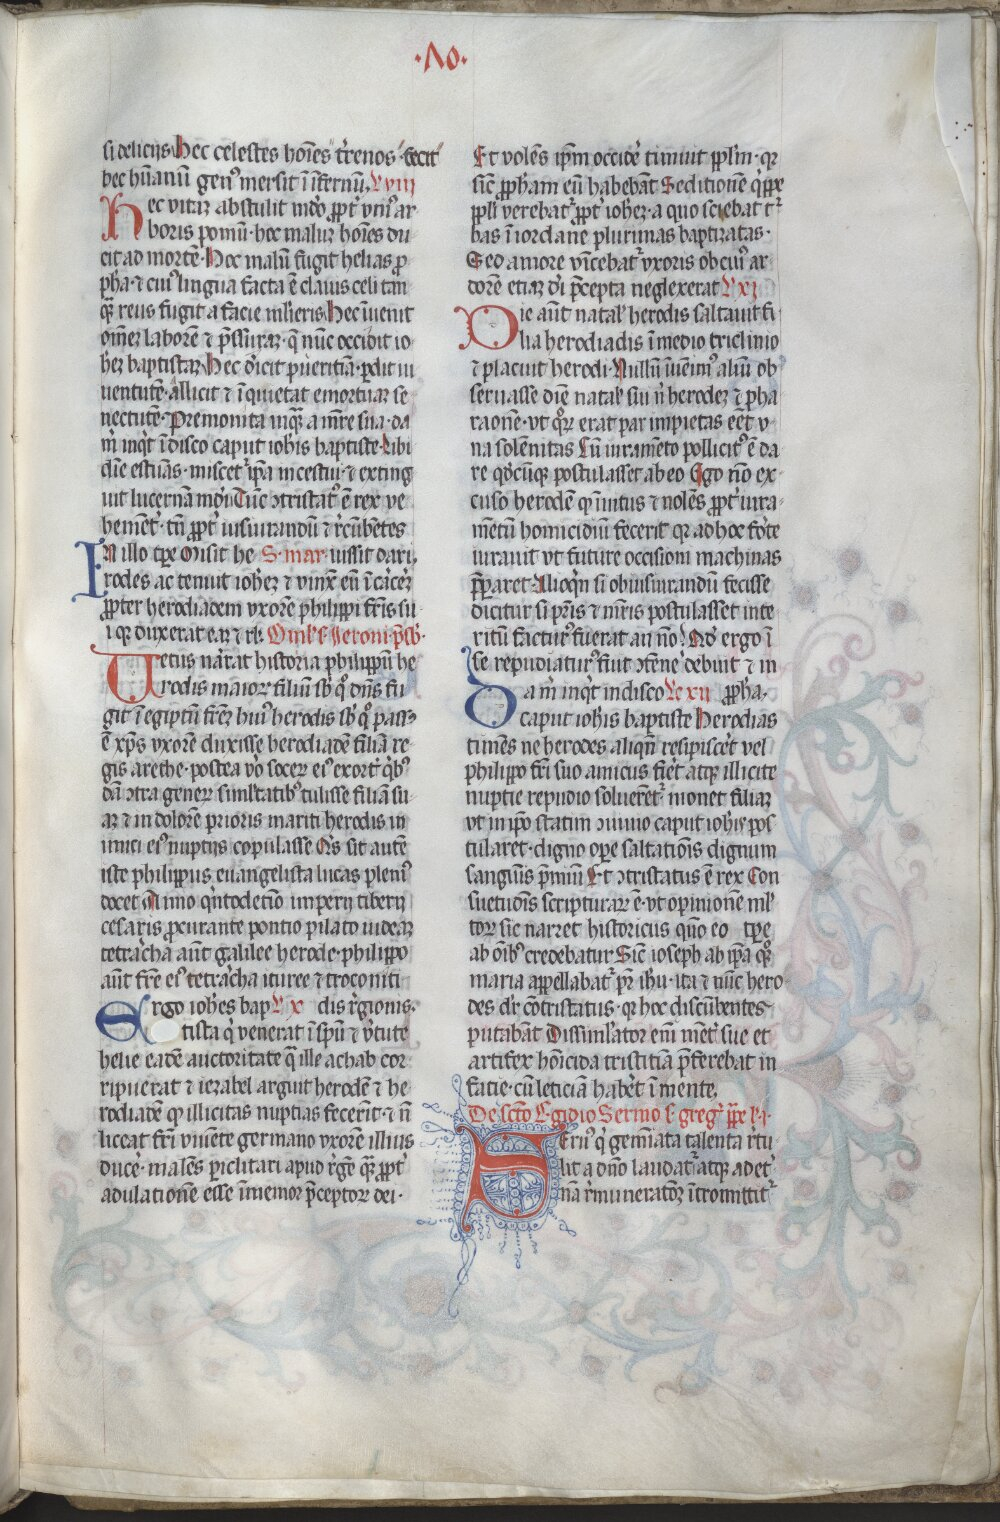 ·Λ0·
si deliciis Hec celestes ho͞ies t͛renos fecit
hec hũanũ genꝰ mersit ĩ ĩfernũ, Lviii
Hec vitaꝫ abstulit mũdo ꝓpt͛ vniꝰ ar
boris pomũ· hoc maluꝫ ho͞ies du
cit ad mortẽ· Hoc malũ fugit helias ꝓ
pha· ⁊ cuiꝰ lingua facta ẽ clauis celi tan
qͣ reus fugit a facie mlieris Hec ĩuenit
omeꝫ laborẽ ⁊ p̃ssuraꝫ· q̃ nũc occidit io
heꝫ baptistaꝫ Hec deicit pueritiã· ꝑdit iu
uentutẽ· Allicit ⁊ ĩquietat emortuaꝫ se
nectutẽ· Premonita inqͣ a m͛re sua· da
m͛ inqt ĩ disco caput ioh̃is baptiste· Libi
dĩe estuãs· miscet͛ ip̃a incestui· ⁊ exting
uit lucernã mũdi Tũc ꝯtristatꝰ ẽ rex ve
hemẽt͛· tñ ꝓpt͛ iusiurandũ ⁊ r͛cũbẽtes
In illo tp̃e Misit he S· mar· iussit dari,
rodes ac tenuit ioheꝫ ⁊ vinx͛ eũ ĩ carceꝫ
ꝓpter herodiadem vxorẽ philippi fr̃is su
i qꝛ duxerat eaꝫ ⁊ rł· Omł· s· Jeroni· p̃sb·
Vetus nar͛at historia philippũ he
rodis maioꝝ filiũ sb̃ qͦ dñs fu
git ĩ egiptũ fr̃eꝫ huiꝰ herodis sb̃ qͦ passꝰ
ẽ xp̃s vxorẽ duxisse herodiadẽ filiã re
gis arethe· postea vͦo soceꝝ eiꝰ exort͛ qͥbꝰ
dã ꝯtra generꝫ simltatibꝰ tulisse filiã su
aꝫ ⁊ in dolorẽ prioris mariti herodis in
imici eiꝰ nuptiis copulasse Qͥs sit autẽ
iste philippus, euangelista lucas pleniꝰ
docet Anno qͥntodecĩo imperii tiberii
cesaris ꝓcurante pontio pilato iudeaꝫ
tetrͣcha aũt galilee herode· philippo
aũt fr̃e eiꝰ tetrͣcha ituree ⁊ troconiti
Ergo ioh̃es bap Lx dis r͛gionis·
tista qͥ venerat ĩ sp̃u ⁊ v͛tute
helie eadẽ auctoritate qͣ ille achab cor
ripuerat ⁊ iezabel arguit herodẽ ⁊ he
rodiadẽ qꝙ illicitas nuptias fecerit· ⁊ ñ
liceat fr̃i viuẽte germano vxorẽ illius
ducẽ· malẽs piclitari apud r͛gẽ qͣꝫ ꝓpt͛
adulationẽ esse ĩmemor p̃ceptoꝝ dei·
Et volẽs ip̃m occidẽ timuit ppl̃m· qꝛ
sic̃ ꝓpham eũ habebãt Seditionẽ qͥppe
ppl̃i verebat͛ ꝓpt͛ ioheꝫ· a quo sciebat t͛
bas ĩ iordane plurimas baptizatas·
Sed amore vĩcebat͛ vxoris ob cuiꝰ ar
dorẽ etiaꝫ di p̃cepta neglexerat Lxi
Die aũt natal͛ herodis saltauit fi
lia herodiadis ĩ medio triclinio
⁊ placuit herodi· Nullũ ĩuẽimꝰ aliũ ob
seruasse diẽ natal͛ sui ñ herodeꝫ ⁊ pha
raonẽ· vt qͦꝝ erat par impietas eẽt v
na solẽnitas Cũ iurameto pollicitꝰ ẽ da
re qdcũqꝫ postulasset ab eo Ego ñ͞o ex
cuso herodẽ q ĩuitus ⁊ nolẽs ꝓpt͛ iura
mẽtũ homicidiũ fecerit qꝛ ad hoc fo͛te
iurauit vt future occisioni machinas
p̃pararet Alioqn si ob iusiurandũ fecisse
dicitur si pr̃is ⁊ mr̃is postulasset inte
ritũ facturꝰ fuerat an ñ͞o? Qd͛ ergo ĩ
se repudiaturꝰ fuit ꝯtẽnẽ debuit ⁊ in
Da m͛ inqͥt in disco Lxii ꝓpha·
caput ioh̃is baptiste Herodias
timẽs ne herodes aliqñ resipiscẽt vel
philippo fr̃i suo amicus fiet atqꝫ illicite
nuptie repudio soluerẽt͛ monet filiaꝫ
vt in ipͦo statim ꝯuiuio caput ioh̃is pos
tularet· digno oꝑe saltatiõis dignum
sanguĩs p̃miũ Et ꝯtristatus ẽ rex Con
suetuõis scripturaꝝ ẽ· vt opinionẽ ml
toꝝ sic narret historicus quõ eo tp̃e
ab õibꝰ credebatur Sic̃ ioseph ab ip̃a qͦꝫ
maria appellabat͛ pr̃ ih̃u· ita ⁊ nũc hero
des dr̃ cõtristatus· qꝛ hoc discũbentes
putabãt Dissimlator em̃ mẽt͛ sue et
artifex hõicida tristitiã p̃ferebat in
facie· cũ leticiã habet͛ ĩ mente,
De scto Egidio Sermo s̃ greg͛ p̃pe
erũ qͥ gemĩata talenta r͛tu
lit a dño laudat͛ atqꝫ ad et͛
nã r͛muneratoꝫ ĩtromittit͛